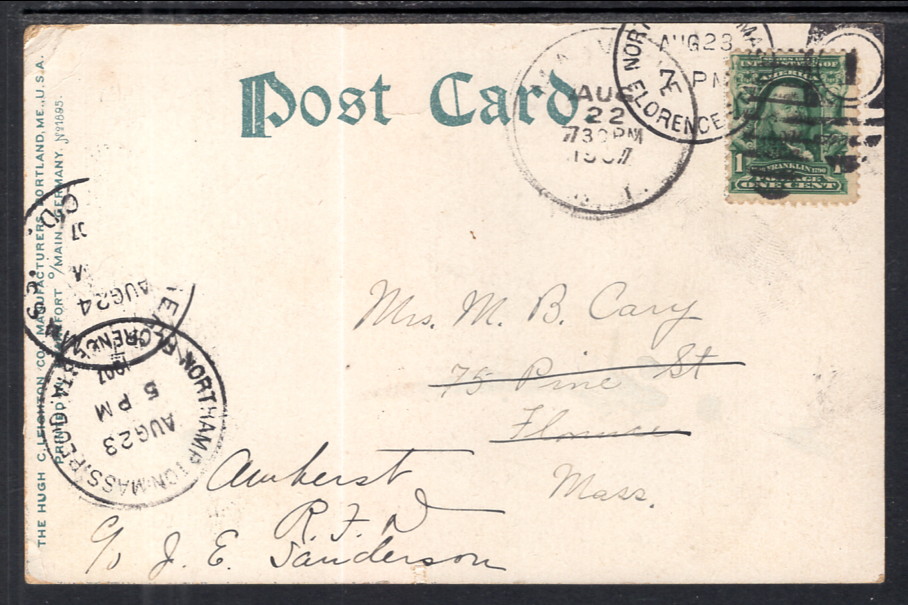 Post Card
AUG
22
730PM
1907
AUG 23
7 PM
FLORENCE
UNITED STATES OF
AMERICA
1
FRANKLIN
POSTAGE
ONE CENT
Mrs. M. B. Cary
75 Pine St
Florence
Mass.
Amherst
R.F.D
c/o J. E. Sanderson
THE HUGH C. LEIGHTON CO., MANUFACTURERS, PORTLAND, ME., U.S.A.
PRINTED FRANKFORT O/MAIN, GERMANY.
AUG 24
NORTHAMPTON MASS. REC'D
AUG 23
5 PM
1907